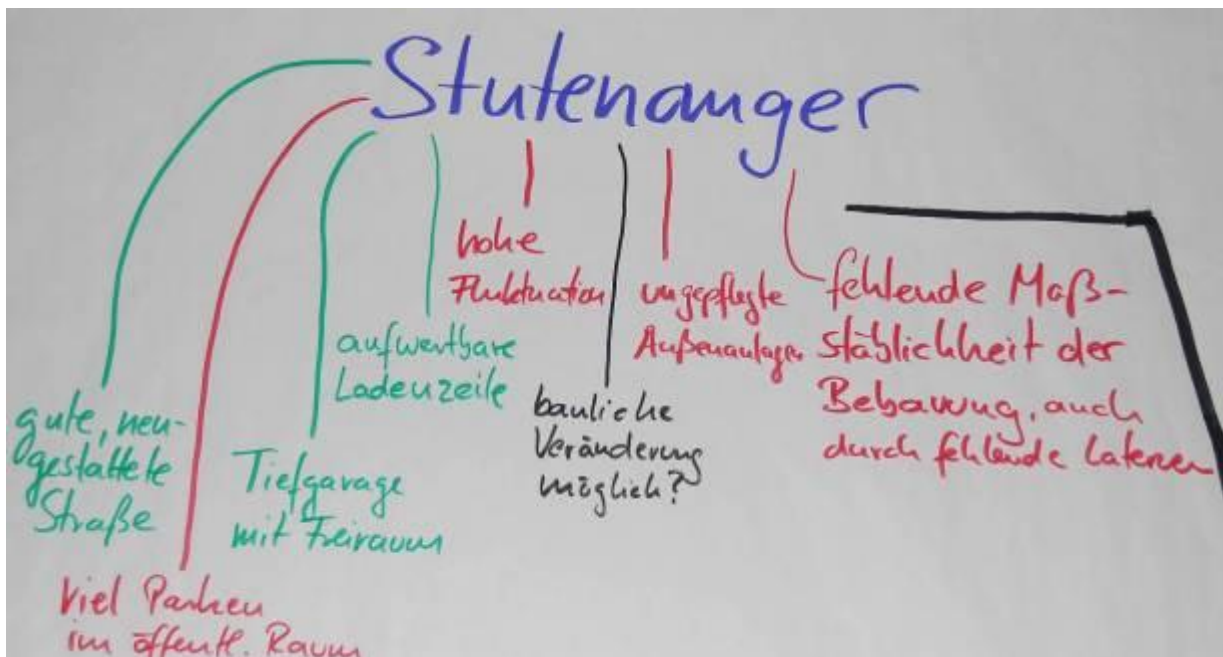 Stutenanger
gute, neu-
gestaltete
Straße
viel Parken
im öffentl. Raum
Tiefgarage
mit Freiraum
aufwertbare
Ladenzeile
hohe
Fluktuation
bauliche
Veränderung
möglich?
ungepflegte
Außenanlagen
fehlende Maß-
stäblichkeit der
Bebauung, auch
durch fehlende Laternen